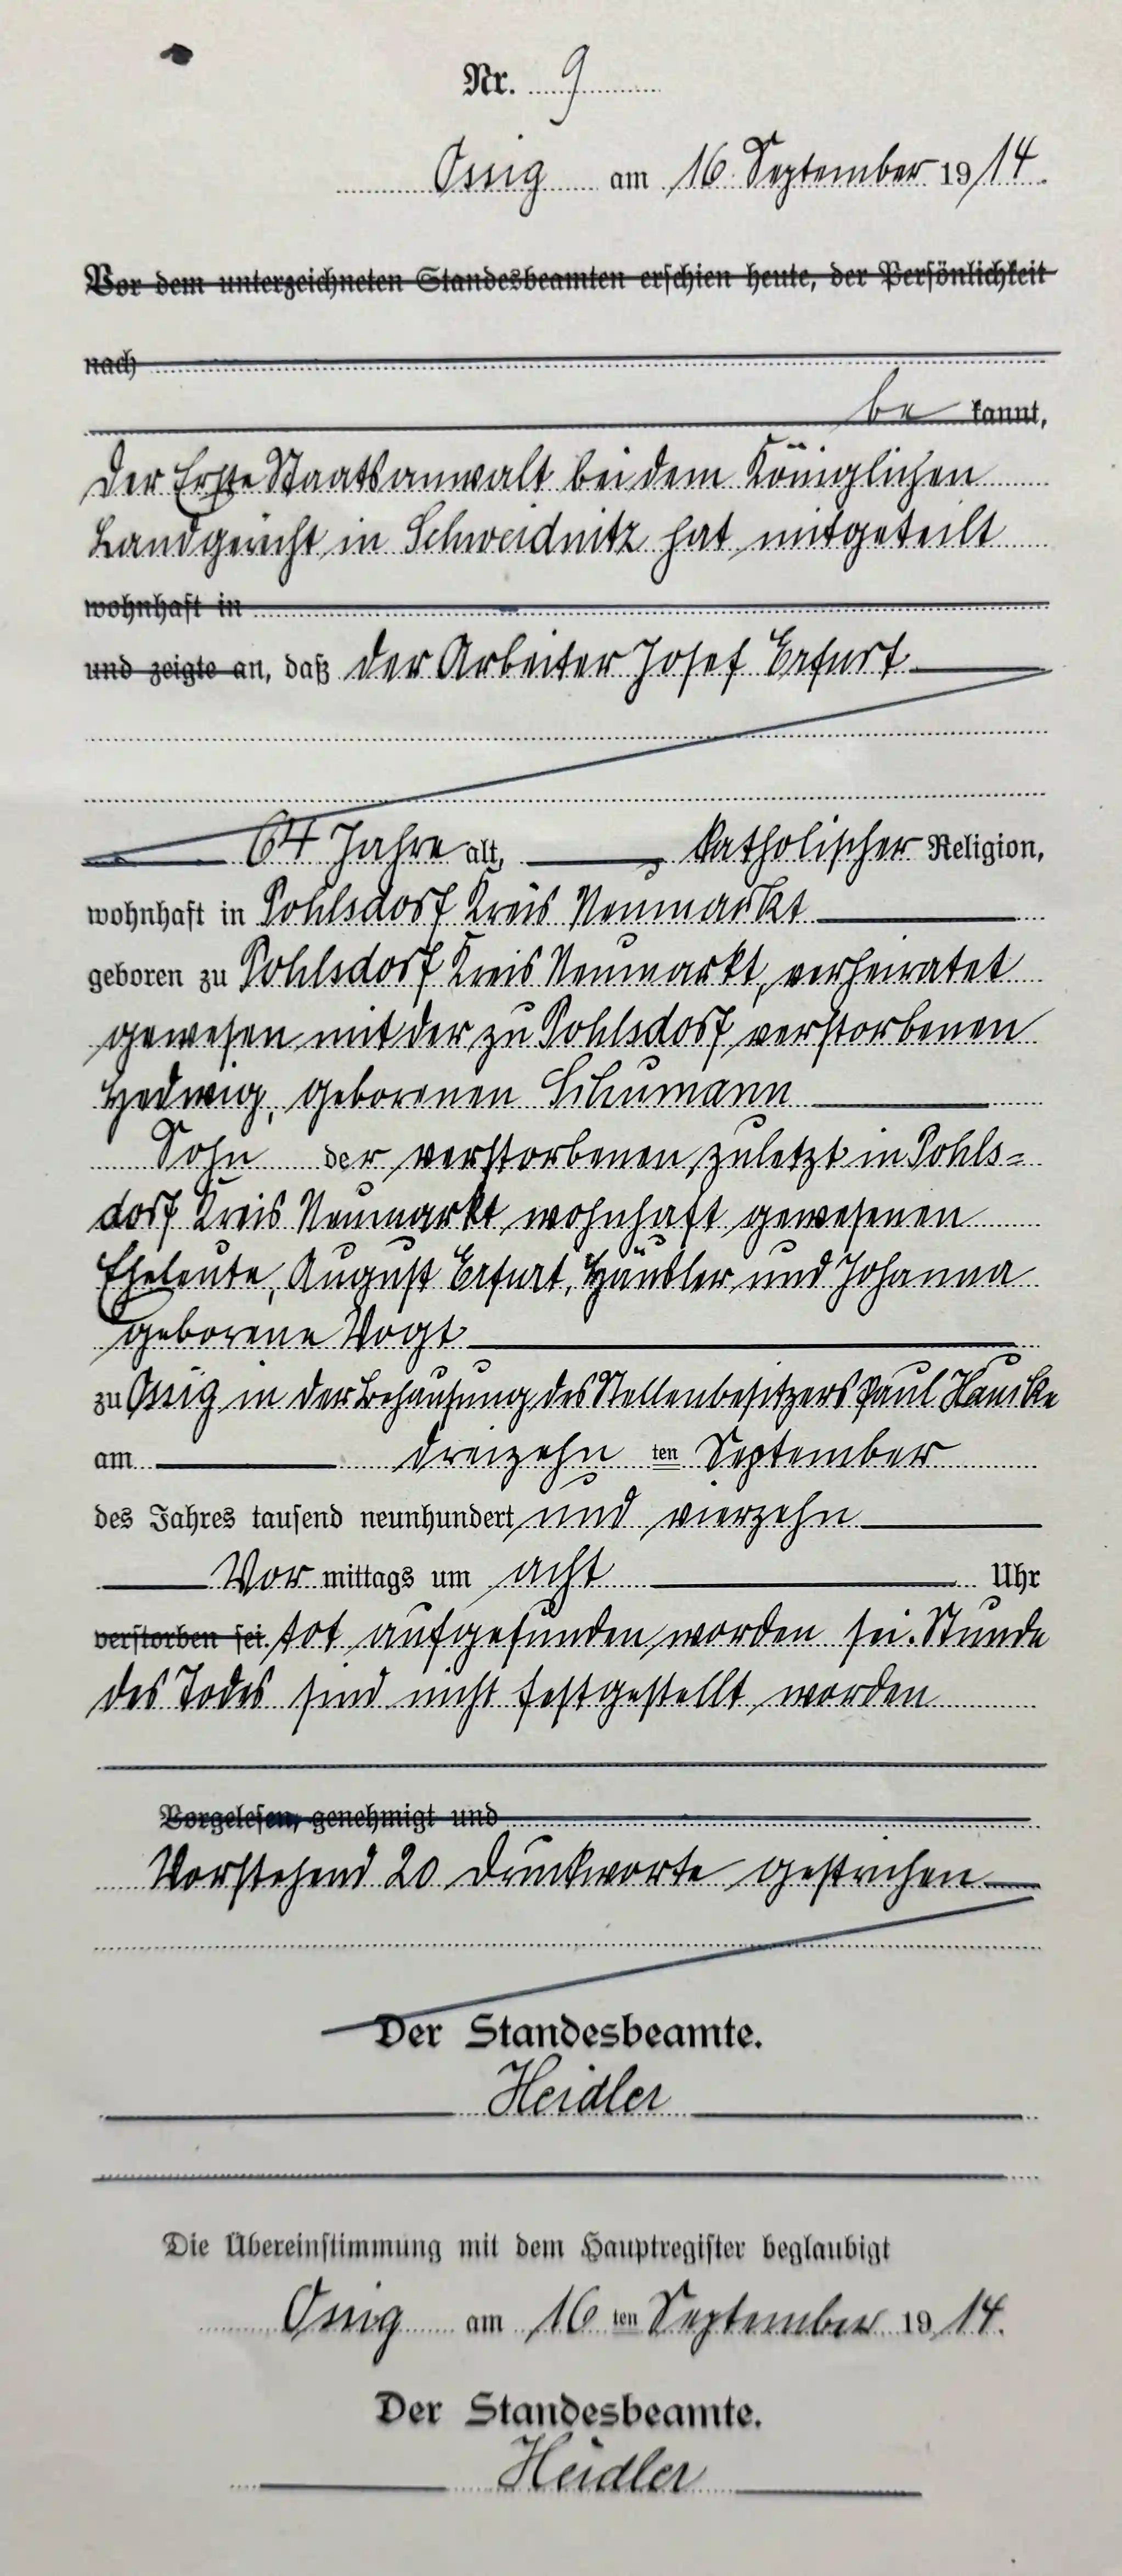 Nr. 9
Ossig am 16. September 1914.
Vor dem unterzeichneten Standesbeamten erschien heute, der Persönlichkeit
nach
be kannt,
Der Erste Staatsanwalt bei dem Königlichen
Landgericht in Schweidnitz hat mitgeteilt
wohnhaft in
und zeigte an, daß der Arbeiter Josef Erfurt
64 Jahre alt, katholischer Religion,
wohnhaft in Pohlsdorf Kreis Neumarkt
geboren zu Pohlsdorf Kreis Neumarkt, verheiratet
gewesen mit der zu Pohlsdorf verstorbenen
Hedwig, geborenen Schumann
Sohn der verstorbenen, zuletzt in Pohls=
dorf Kreis Neumarkt wohnhaft gewesenen
Eheleute, August Erfurt, Häusler und Johanna
geborene Vogt
zu Ossig in der Behausung des Stellenbesitzers Paul
am dreizehn ten September
des Jahres tausend neunhundert und vierzehn
Vor mittags um acht Uhr
verstorben sei. tot aufgefunden worden sei. Stunde
des Todes sind nicht festgestellt worden
Vorgelesen, genehmigt und
Vorstehend 20 Druckworte gestrichen
Der Standesbeamte.
Heidler
Die Übereinstimmung mit dem Hauptregister beglaubigt
Ossig am 16 ten September 1914.
Der Standesbeamte.
Heidler